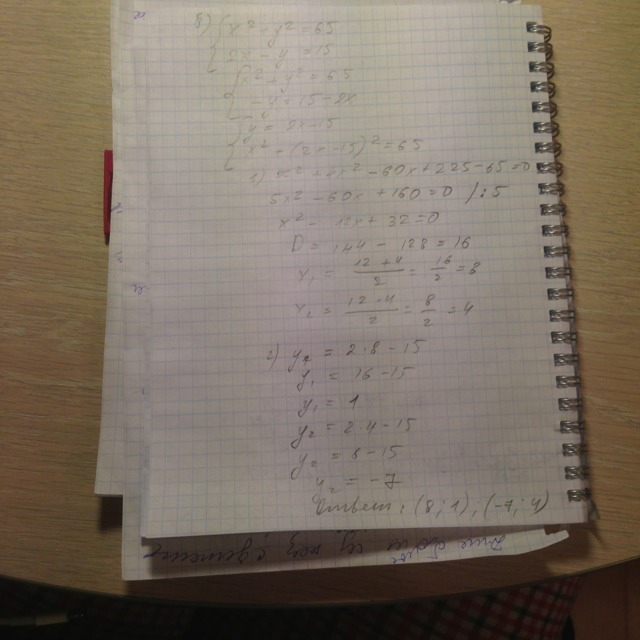 x² + y² = 65
2x - y = 15
x² + y² = 65
-y = 15 - 2x
y = 2x - 15
x² + (2x - 15)² = 65
1) x² + 4x² - 60x + 225 - 65 = 0
5x² - 60x + 160 = 0 /:5
x² - 12x + 32 = 0
D = 144 - 128 = 16
x₁ = (12 + 4)/2 = 16/2 = 8
x₂ = (12 - 4)/2 = 8/2 = 4
2) y₂ = 2·8 - 15
y₁ = 16 - 15
y₁ = 1
y₂ = 2·4 - 15
y₂ = 8 - 15
y₂ = -7
Ответ: (8; 1), (-7; 4)